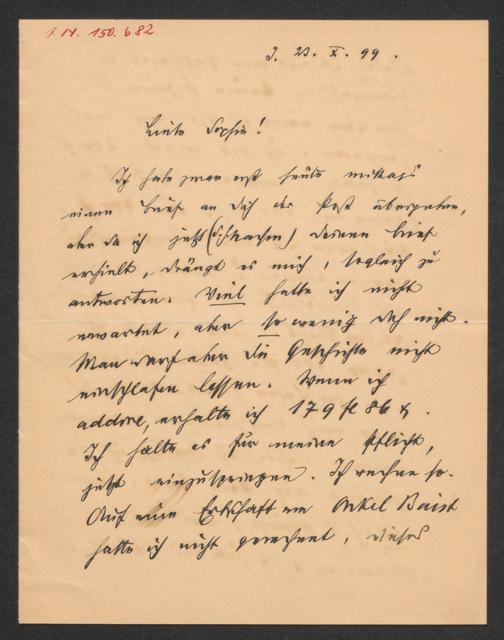 I.N. 150.682
J. 23. X. 99.
Liebe Sophie!
Ich habe zwar erst heute mittags
einen Brief an Dich der Post übergeben,
aber da ich jetzt (5h Nachm) deinen Brief
erhielt, drängt es mich, sogleich zu
antworten. Viel hatte ich nicht
erwartet, aber so wenig doch nicht.
Man darf aber die Geschichte nicht
einschlafen lassen. Wenn ich
addire, erhalte ich 179 fl 86 x.
Ich halte es für meine Pflicht,
jetzt einzuspringen. Ich rechne so.
Auf eine Erbschaft von Onkel
hatte ich nicht gerechnet, dieses